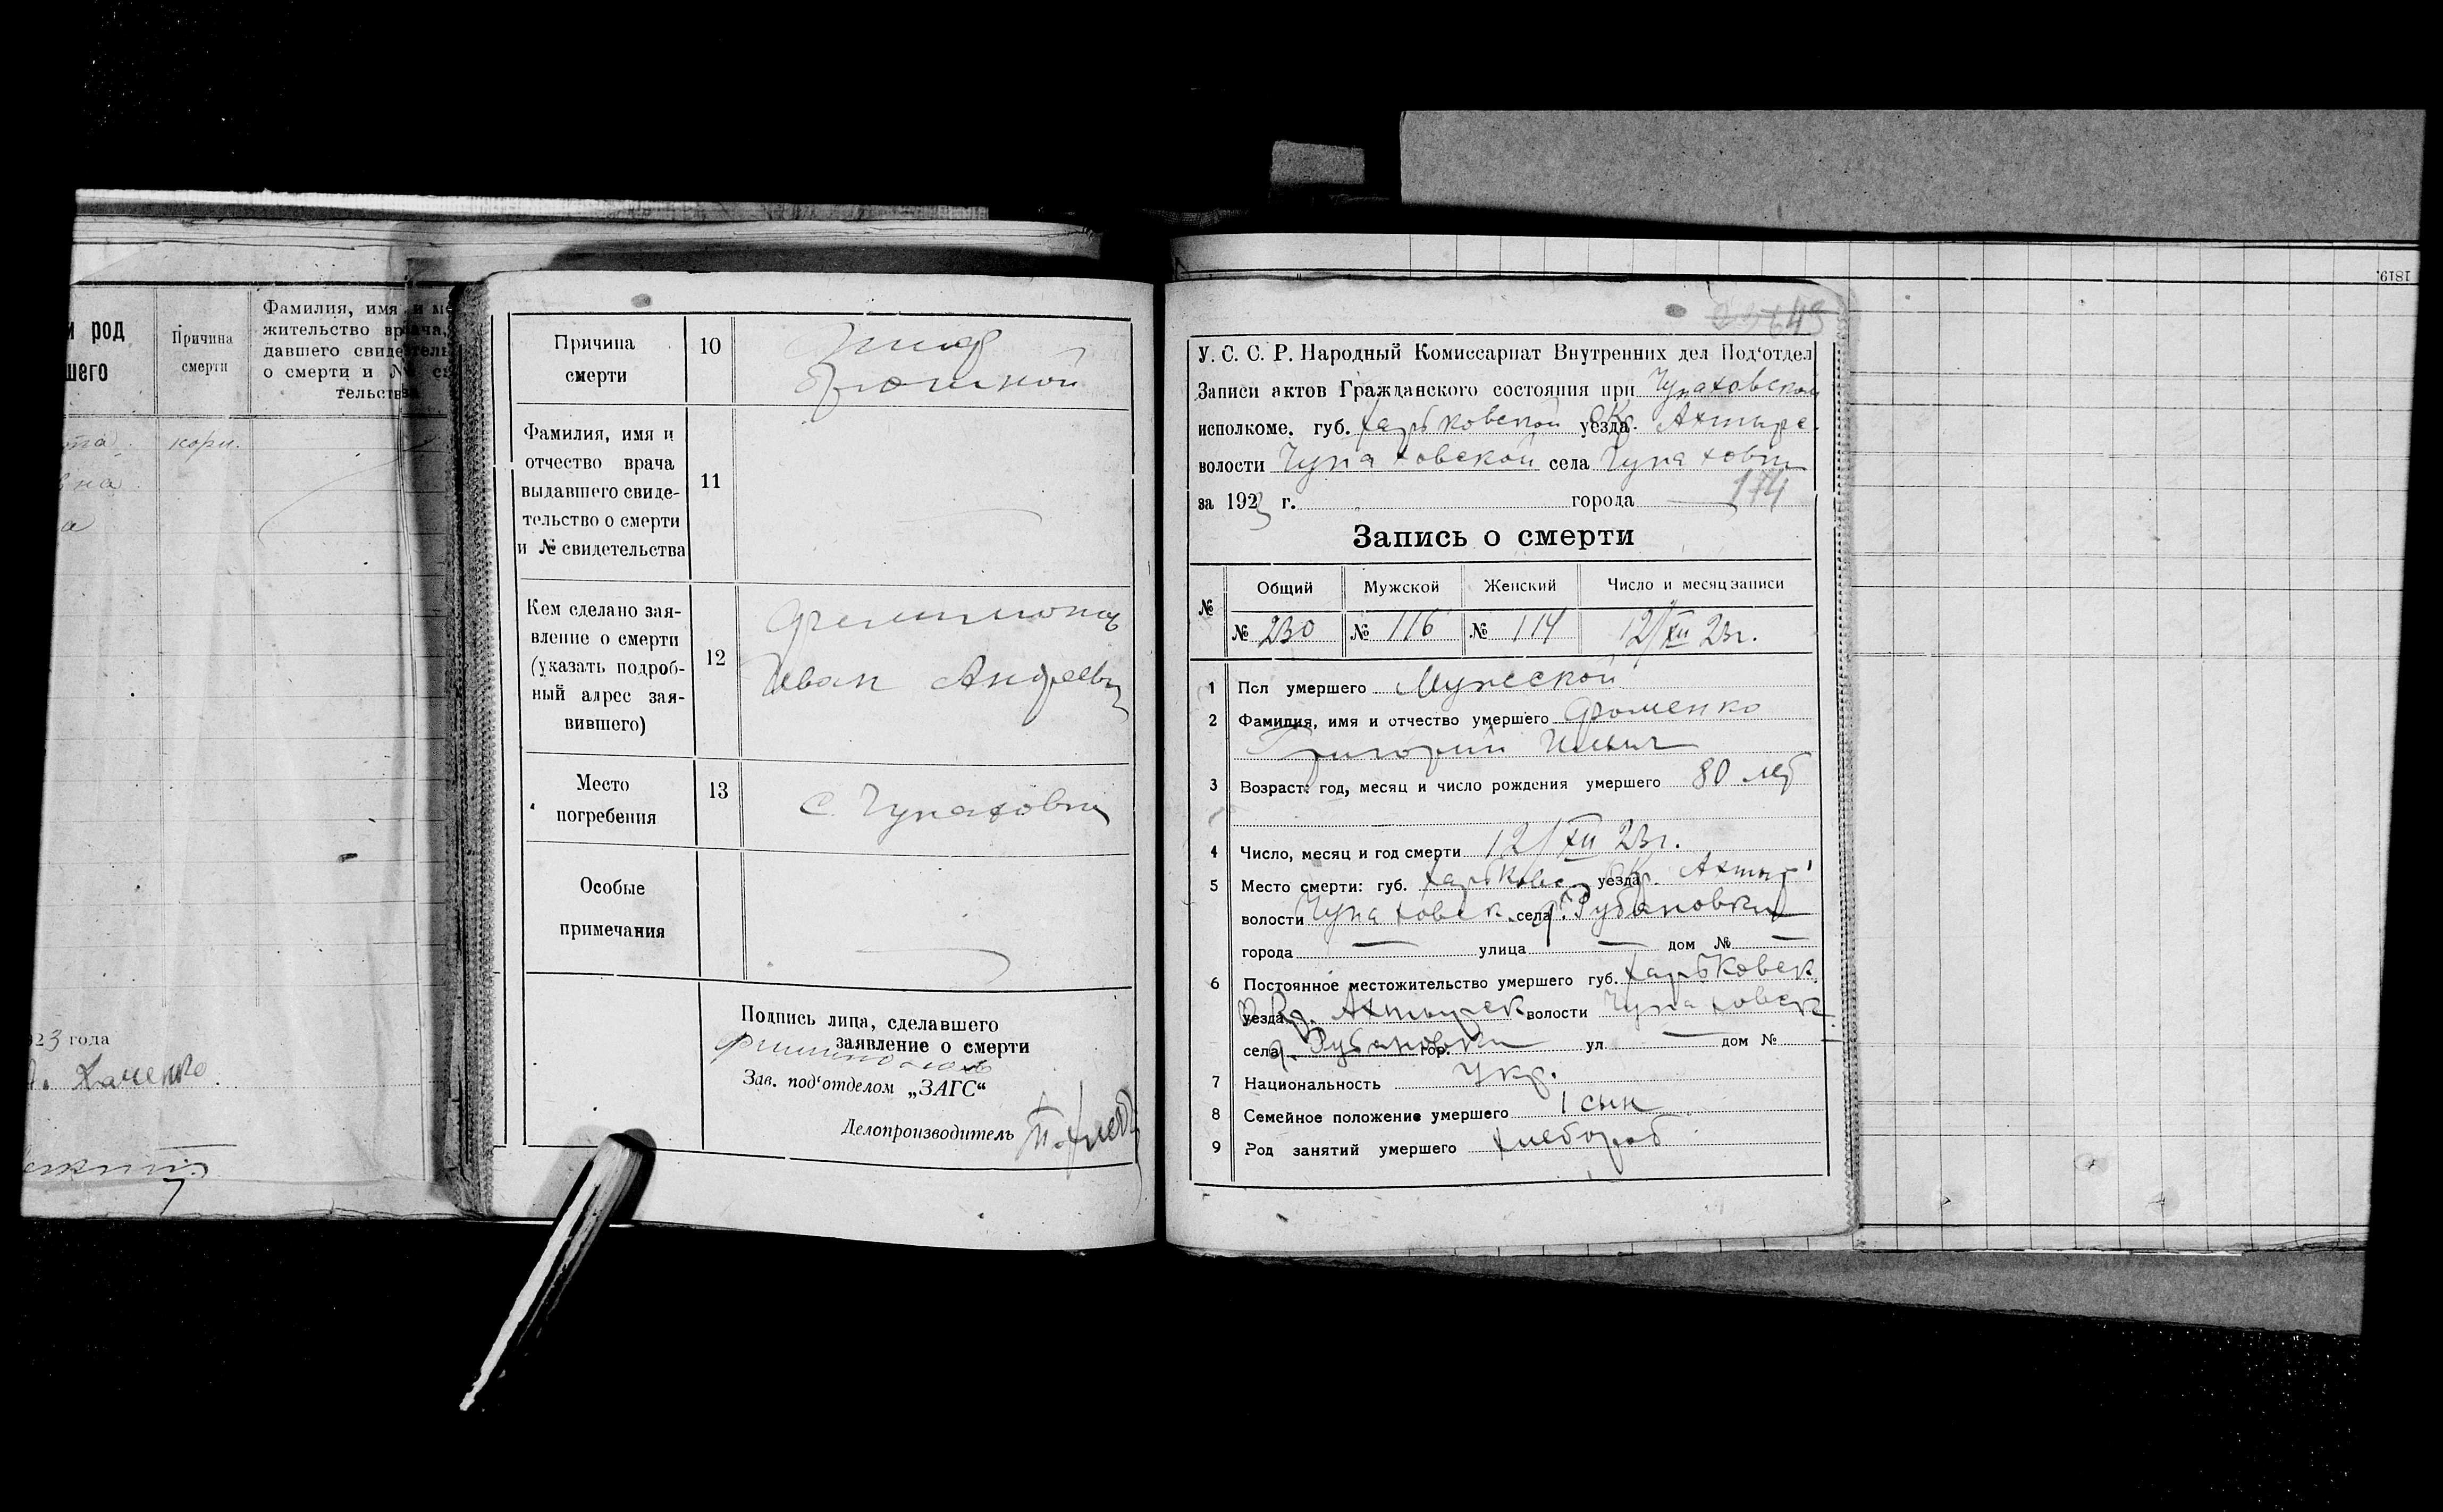 и род
шего
Причина
смерти
Фамилия, имя и ме
жительство врача,
давшего свидетель
о смерти и № св
тельства
кори.
на
а
923 года
Причина
смерти
10
Тиф
брюшной
Фамилия, имя и
отчество врача
выдавшего свиде-
тельство о смерти
и № свидетельства
11
Кем сделано зая-
вление о смерти
(указать подроб-
ный адрес зая-
вившего)
12
Филимонов
Иван Андреевич
Место
погребения
13
С. Чупаховки
Особые
примечания
Подпись лица, сделавшего
заявление о смерти
Зав. под‘отделом „ЗАГС“
Делопроизводитель
У. С. С. Р. Народный Комиссариат Внутренних дел Под‘отдел
Записи актов Гражданского состояния при Чупаховском
исполкоме. губ. Харьковской уезда Окр. Ахтырс.
волости Чупаховской села Чупаховки
за 1923 г. города
174
Запись о смерти
№
Общий Мужской Женский Число и месяц записи
№ 230 № 116 № 114 12/XII 23г.
1 Пол умершего Мужеской
2 Фамилия, имя и отчество умершего Фоменко
Григорий Ильич
3 Возраст: год, месяц и число рождения умершего 80 лет
4 Число, месяц и год смерти 12/XII 23г.
5 Место смерти: губ. Харьковс уезда Окр. Ахтыр
волости Чупаховск. села х. Рубановки
города — улица — дом № —
6 Постоянное местожительство умершего губ. Харьковск.
уезда Окр. Ахтырск волости Чупаховск.
села х. Рубановки гор. ул. — дом № —
7 Национальность Укр.
8 Семейное положение умершего 1 сын
9 Род занятий умершего хлебороб
1819.